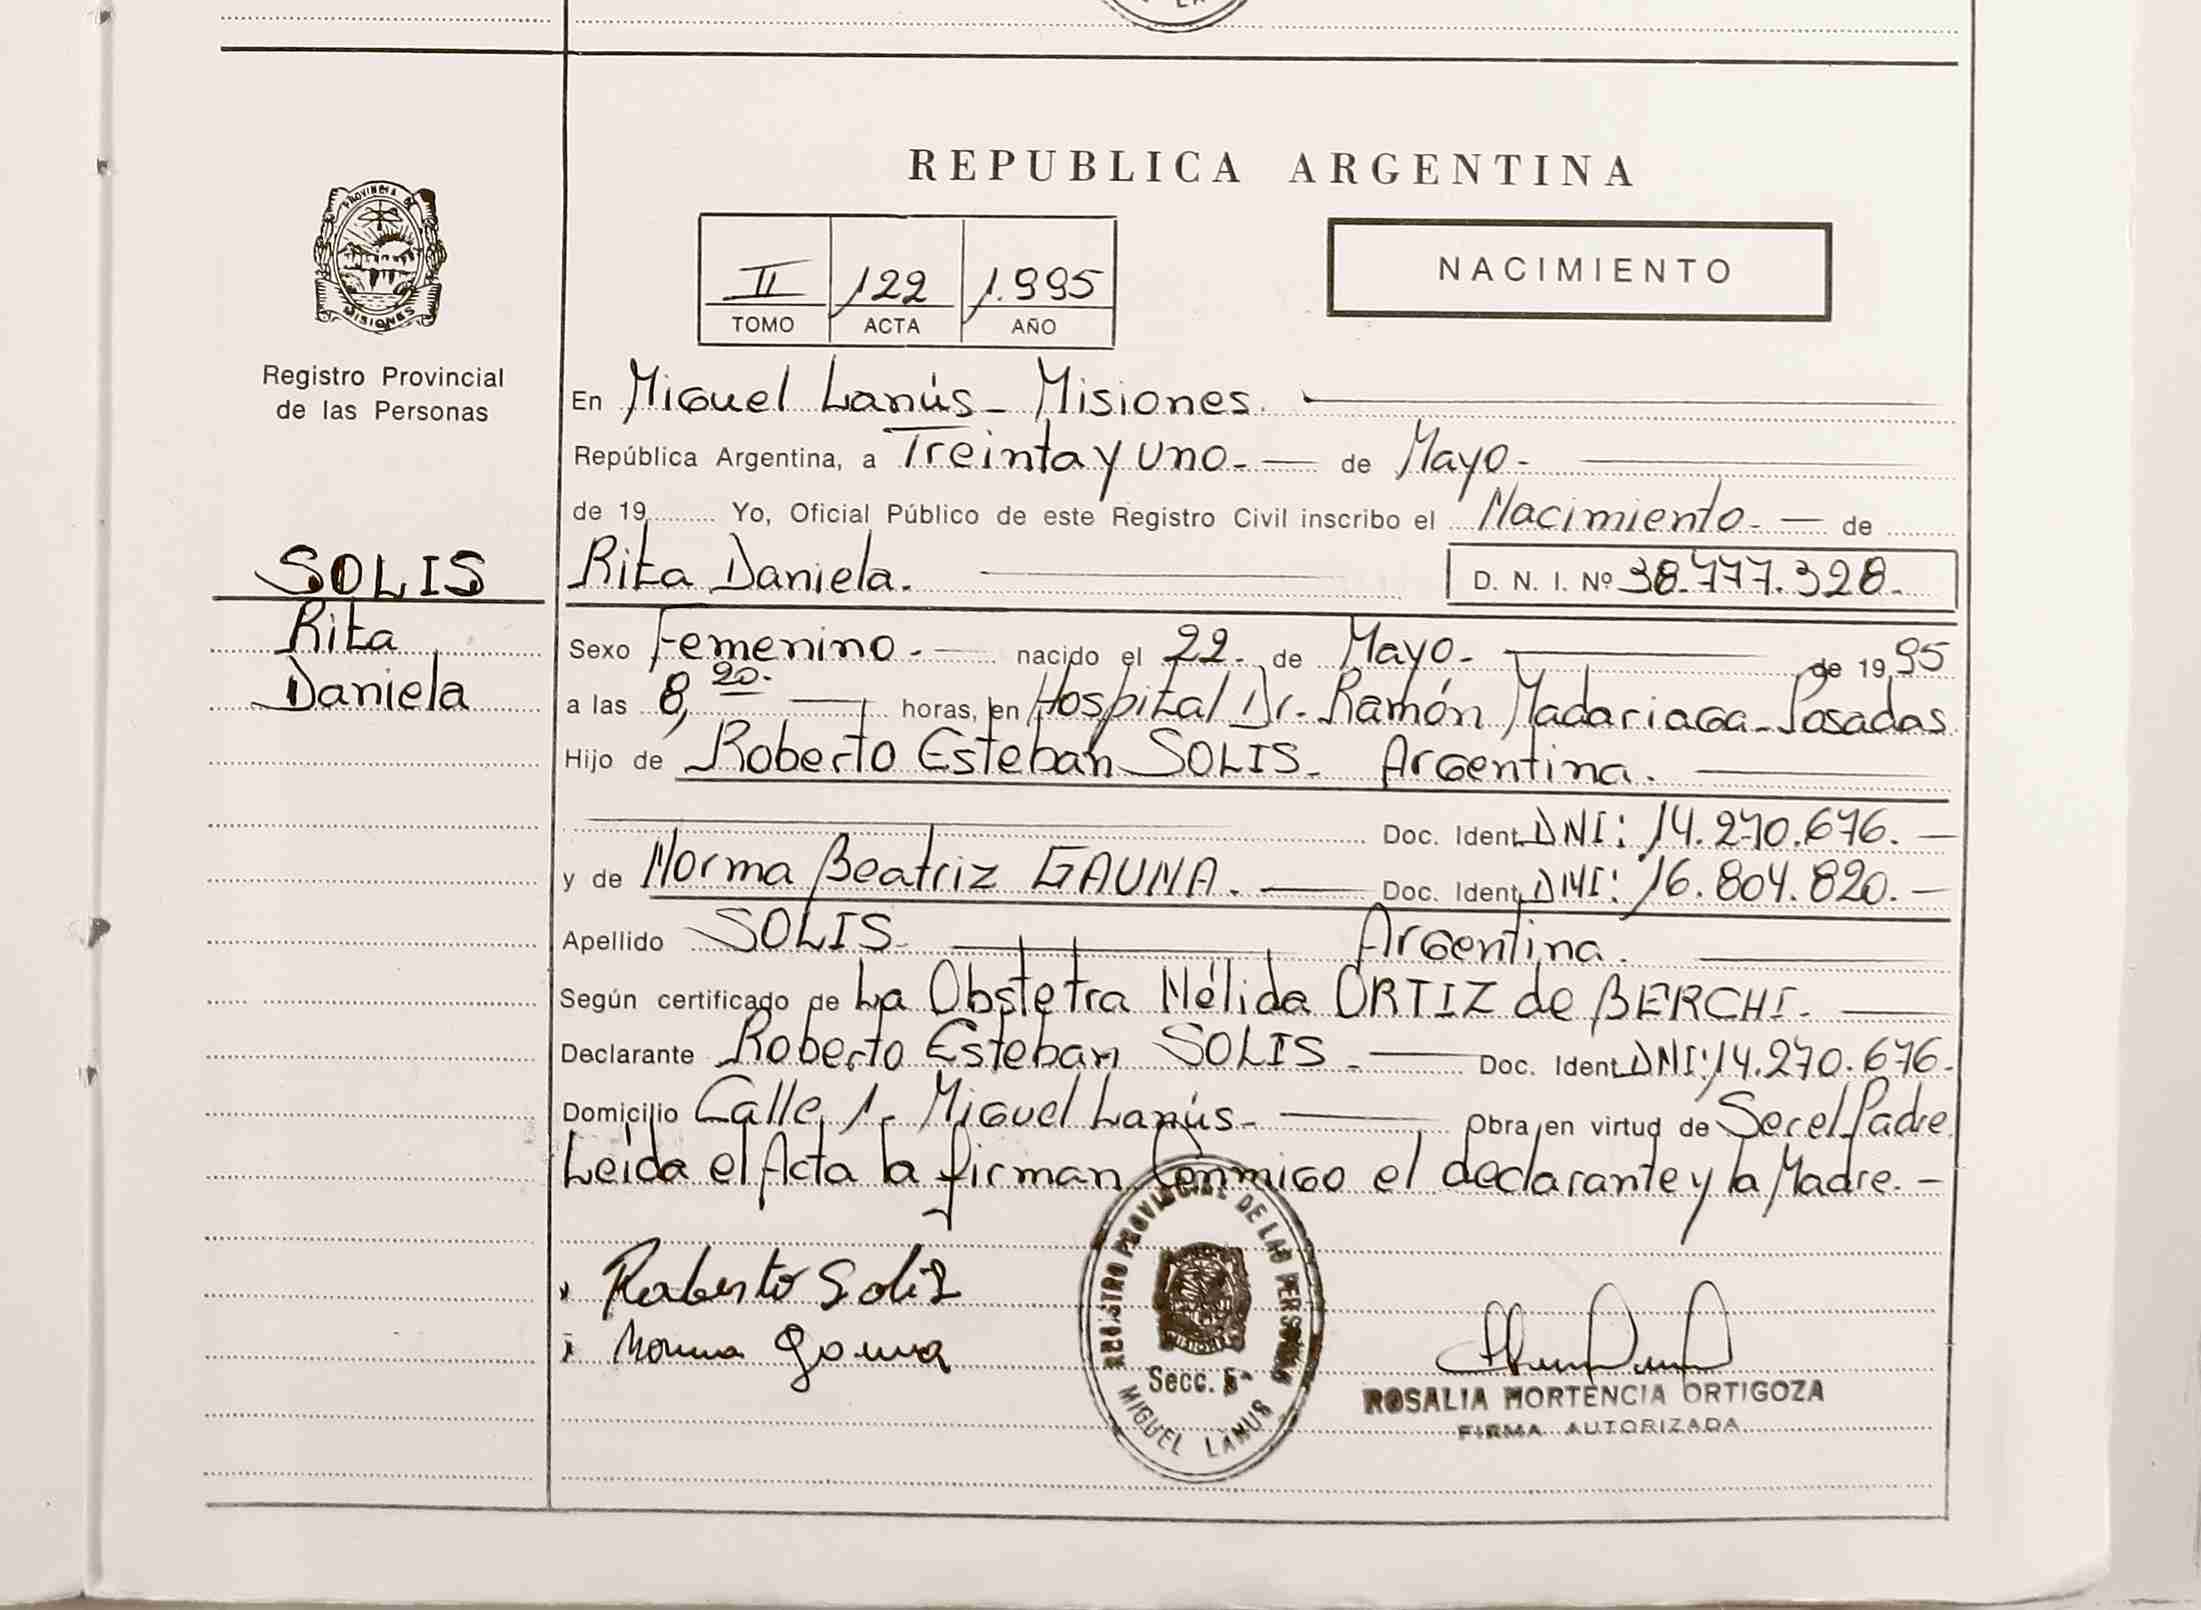 REPUBLICA ARGENTINA
PROVINCIA DE
MISIONES
Registro Provincial
de las Personas
II 122 1.995
TOMO ACTA AÑO
NACIMIENTO
En Miguel Lanús - Misiones.
República Argentina, a Treinta y Uno. de Mayo.
de 19 Yo, Oficial Público de este Registro Civil inscribo el Nacimiento. de
SOLIS
Rita
Daniela
Rita Daniela. D. N. I. Nº 38.777.328.
Sexo Femenino. nacido el 22. de Mayo. de 1995
a las 8,20. horas, en Hospital Dr. Ramón Madariaga - Posadas.
Hijo de Roberto Esteban SOLIS. Argentina.
Doc. Ident. DNI: 14.270.676.
y de Norma Beatriz GAUNA. Doc. Ident. DNI: 16.804.820.
Apellido SOLIS Argentina.
Según certificado de La Obstetra Nélida ORTIZ de BERCHI.
Declarante Roberto Esteban SOLIS. Doc. Ident. DNI: 14.270.676.
Domicilio Calle 1 - Miguel Lanús. Obra en virtud de Ser el Padre.
Leída el Acta la firman Conmigo el declarante y la Madre.
Roberto Solis
Norma Gauna
REGISTRO PROVINCIAL DE LAS PERSONAS
MISIONES
Secc. 5ª
MIGUEL LANUS
ROSALIA HORTENCIA ORTIGOZA
FIRMA AUTORIZADA